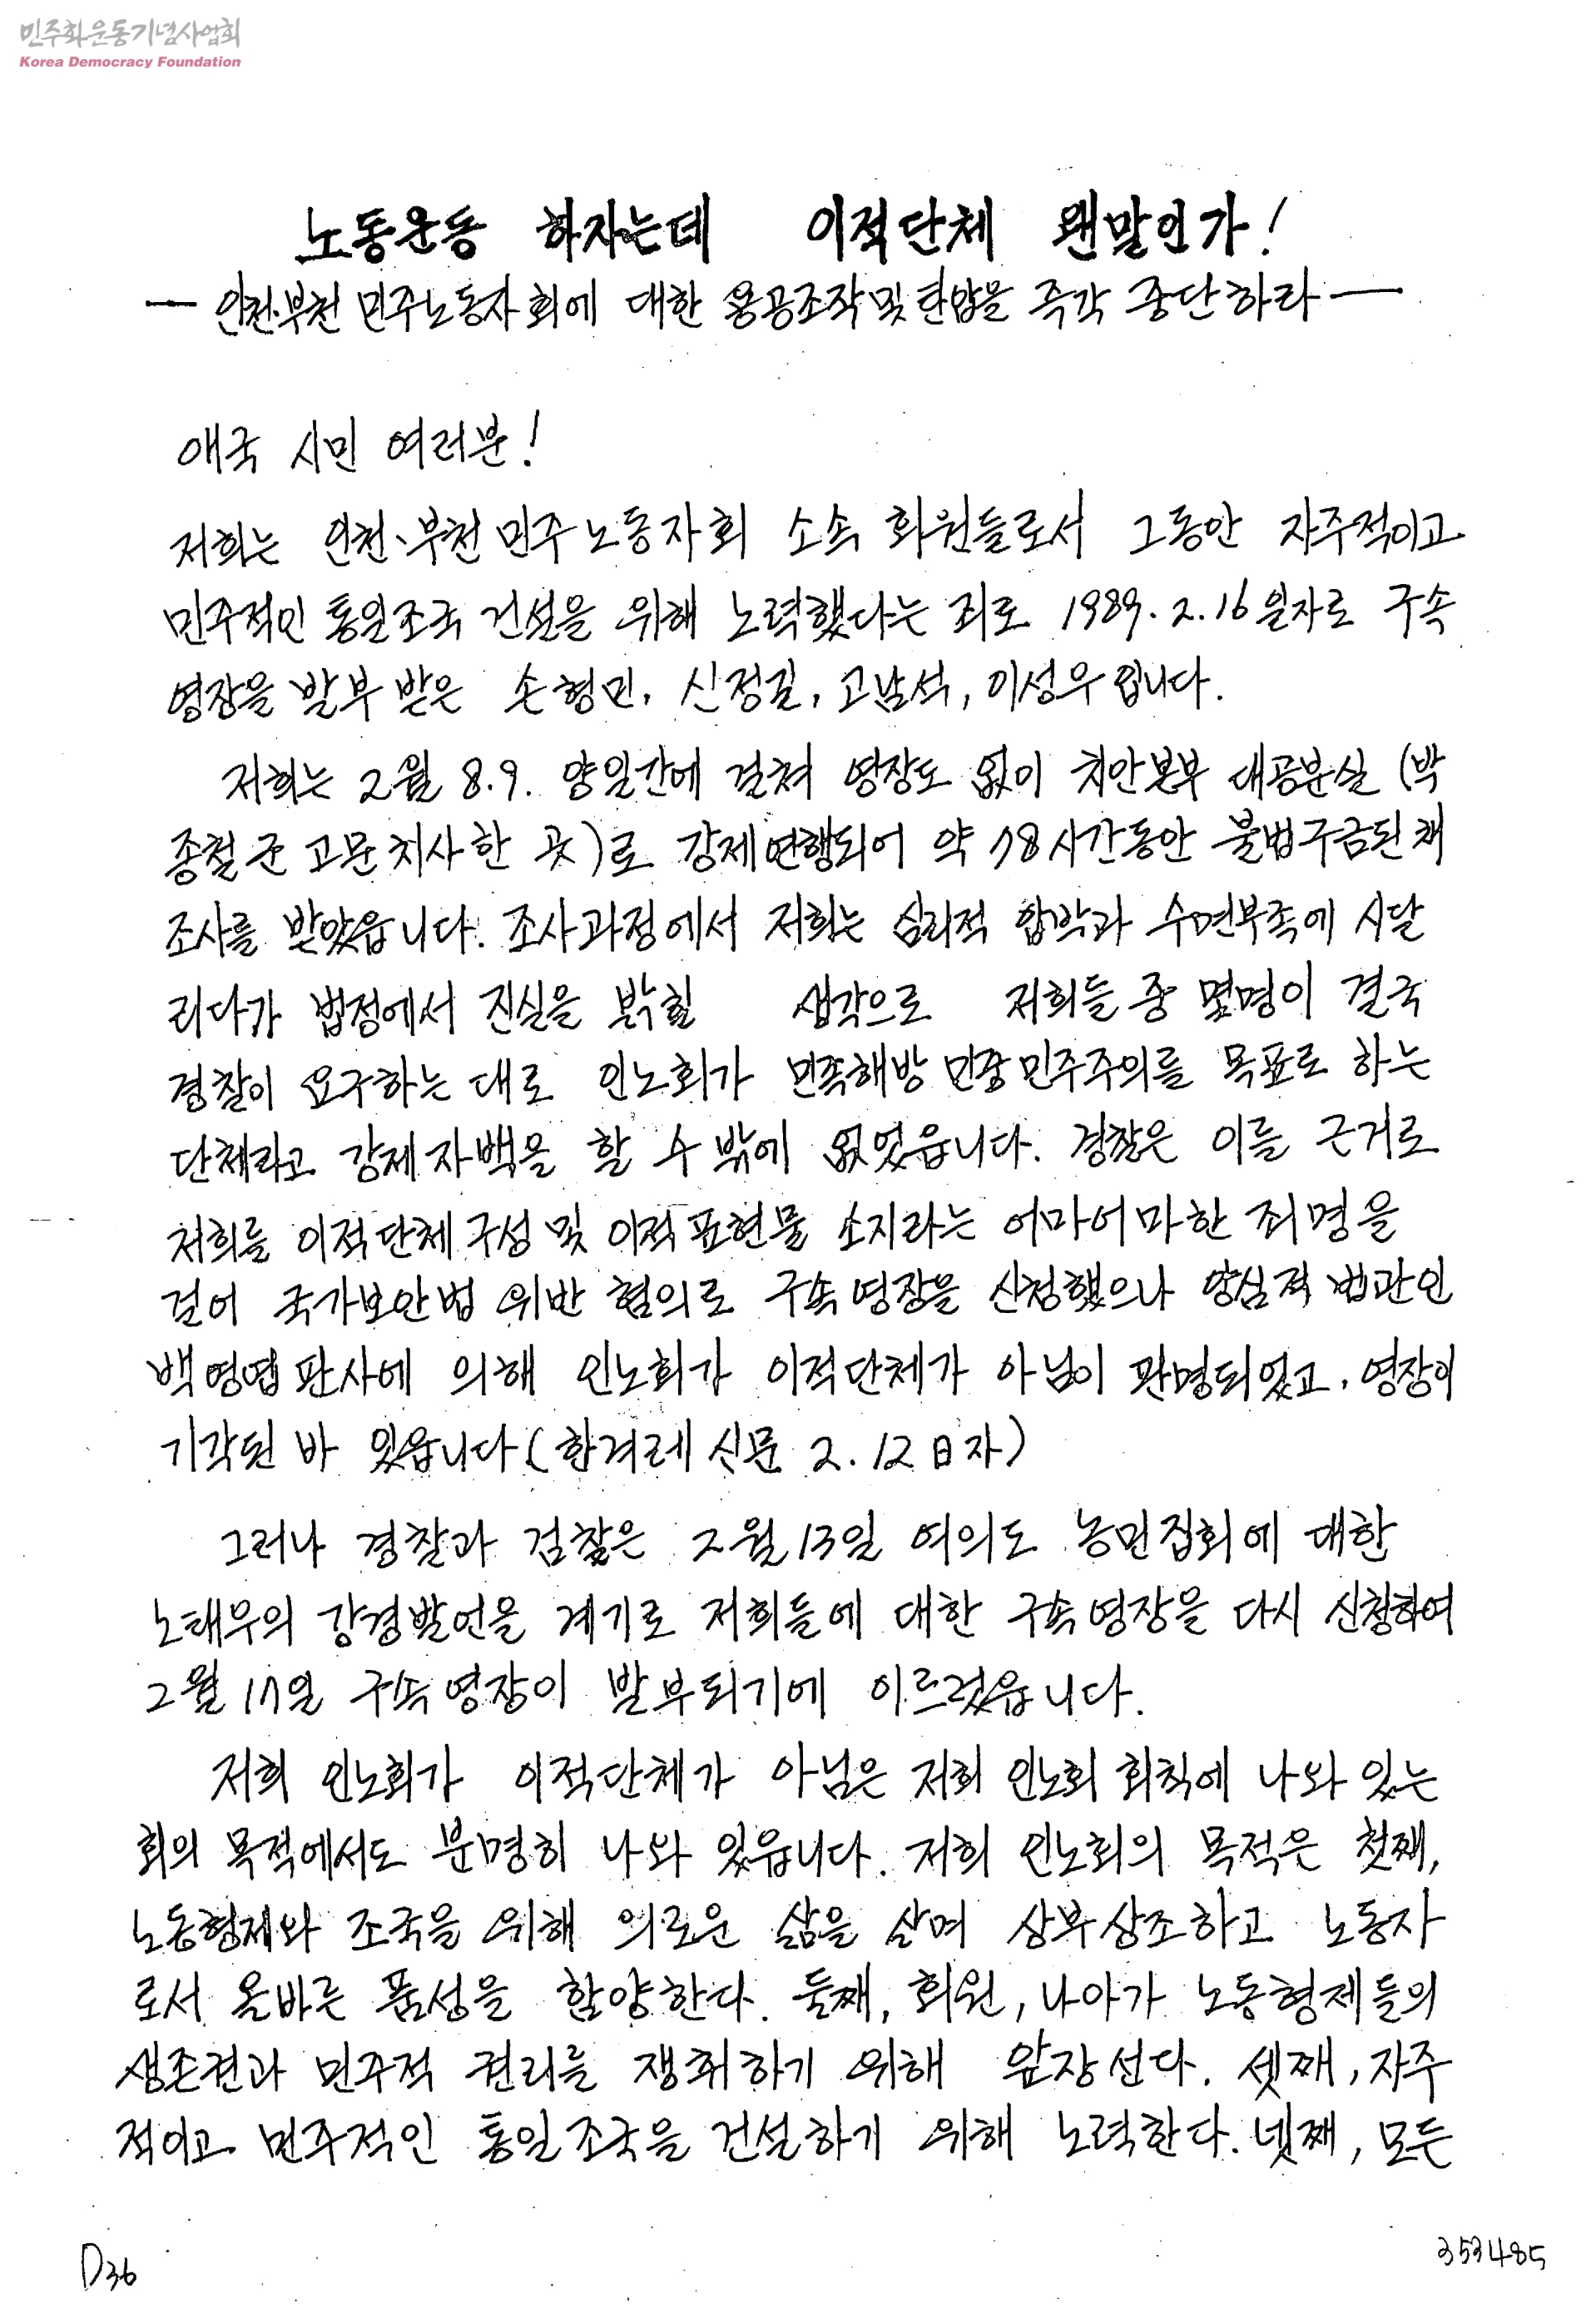 민주화운동기념사업회
Korea Democracy Foundation
노동운동 하자는데 이적단체 왠말인가!
— 인천·부천 민주노동자회에 대한 용공조작및탄압을 즉각 중단하라 —
애국 시민 여러분!
저희는 인천、부천 민주노동자회 소속 회원들로서 그동안 자주적이고
민주적인 통일조국 건설을 위해 노력했다는 죄로 1989. 2. 16일자로 구속
영장을 발부 받은 손형민, 신정길, 고남석, 이성우입니다.
저희는 2월 8.9. 양일간에 걸쳐 영장도 없이 치안본부 대공분실 (박
종철군 고문치사한 곳)로 강제연행되어 약 78시간동안 불법구금된채
조사를 받았읍니다. 조사과정에서 저희는 심리적 압박과 수면부족에 시달
리다가 법정에서 진실을 밝힐 생각으로 저희들 중 몇명이 결국
경찰이 요구하는 대로 인노회가 민족해방 민중 민주주의를 목표로 하는
단체라고 강제자백을 할 수 밖에 없었읍니다. 경찰은 이를 근거로
저희를 이적단체구성 및 이적표현물 소지라는 어마어마한 죄명을
걸어 국가보안법 위반 혐의로 구속영장을 신청했으나 양심적 법관인
백영엽 판사에 의해 인노회가 이적단체가 아님이 판명되었고, 영장이
기각된 바 있읍니다(한겨레 신문 2. 12日자)
그러나 경찰과 검찰은 2월 13일 여의도 농민집회에 대한
노태우의 강경발언을 계기로 저희들에 대한 구속영장을 다시 신청하여
2월 17일 구속영장이 발부되기에 이르렀읍니다.
저희 인노회가 이적단체가 아님은 저희 인노회 회칙에 나와 있는
회의 목적에서도 분명히 나와 있읍니다. 저희 인노회의 목적은 첫째,
노동형제와 조국을 위해 의로운 삶을 살며 상부상조하고 노동자
로서 올바른 품성을 함양한다. 둘째, 회원, 나아가 노동형제들의
생존권과 민주적 권리를 쟁취하기 위해 앞장선다. 셋째, 자주
적이고 민주적인 통일조국을 건설하기 위해 노력한다. 넷째, 모든
D36
353485